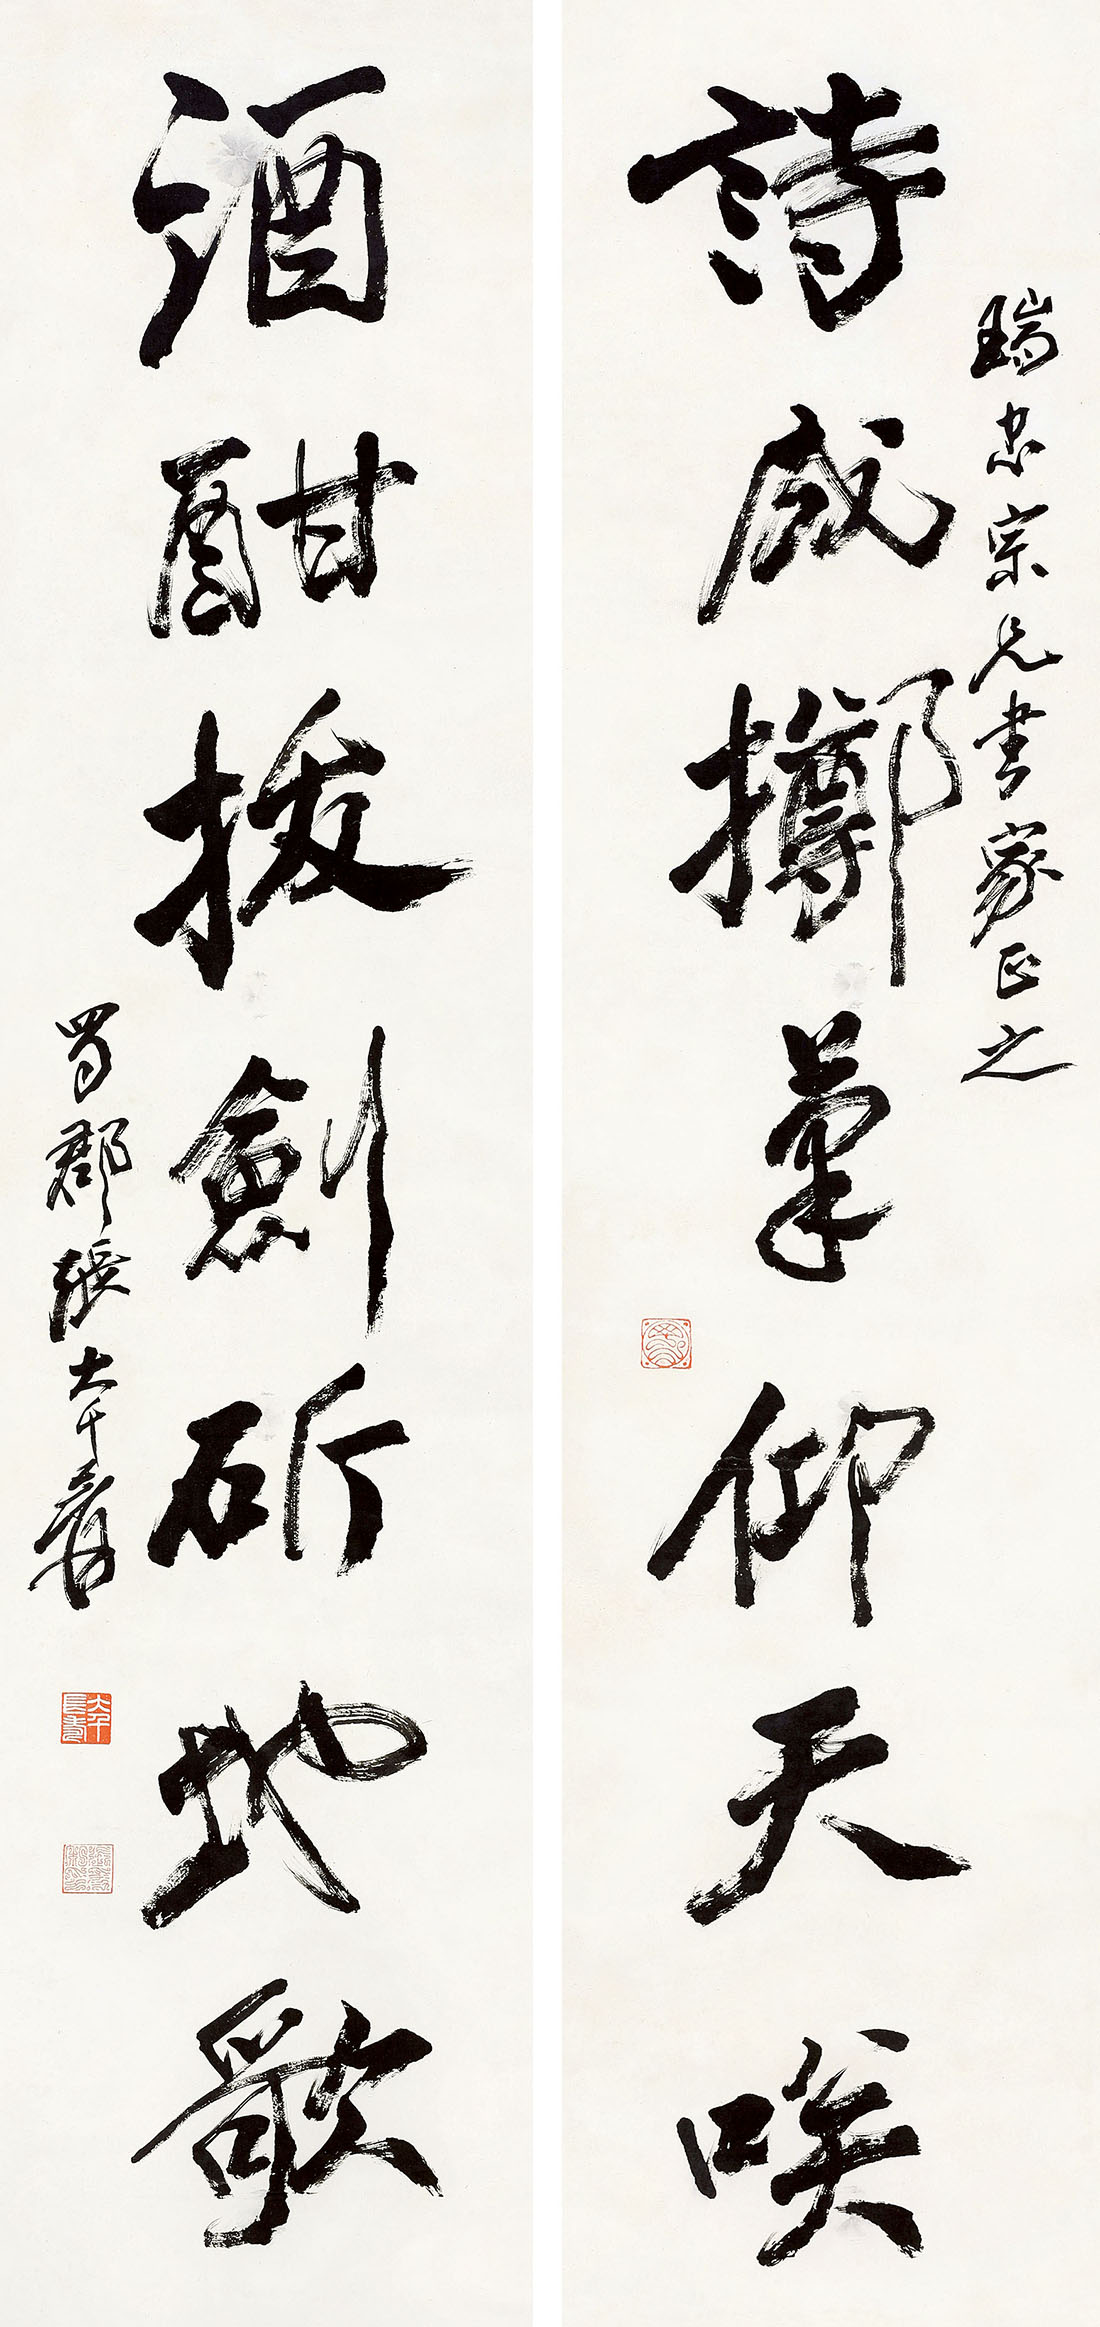 瑞忠宗兄書家正之
詩成擲筆仰天唉
酒酣拔劍斫地歌
蜀郡張大千爰
大千長壽